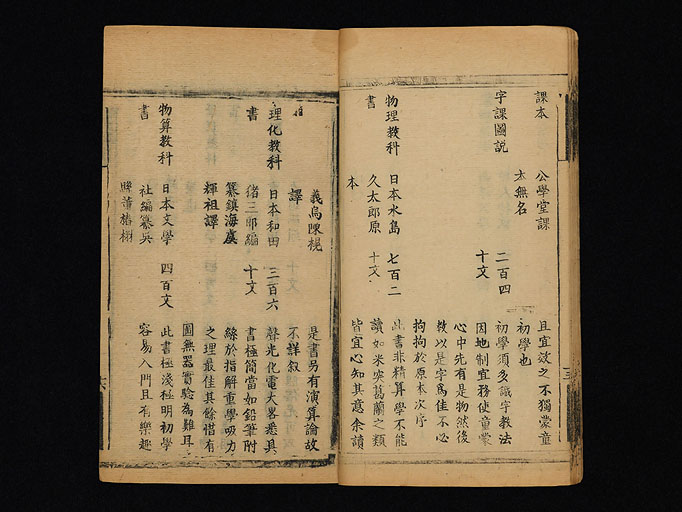 課本 公學堂課 且宜效之不獨蒙童
太無名 初學也
字課圖說 二百四 初學須多識字教法
十文 因地制宜務使童蒙
心中先有是物然後
教以是字為佳不必
拘拘於原本次序
物理教科 日本水島 七百二 此書非精算學不能
書 久太郎原 十文 讀如米突葛蘭之類
本 皆宜心知其意余讀
義烏陳榥 是書另有演算論故
譯 不詳敘
理化教科 日本和田 三百六 聲光化電大畧悉具
書 猪三郎編 十文 書極簡當如鉛筆附
纂鎮海虞 線於指解重學吸力
輝祖譯 之理最佳其餘惜有
圖無器實驗為難耳
物算教科 日本文學 四百文 此書極淺極明初學
書 社編纂吳 容易入門且有樂趣
六